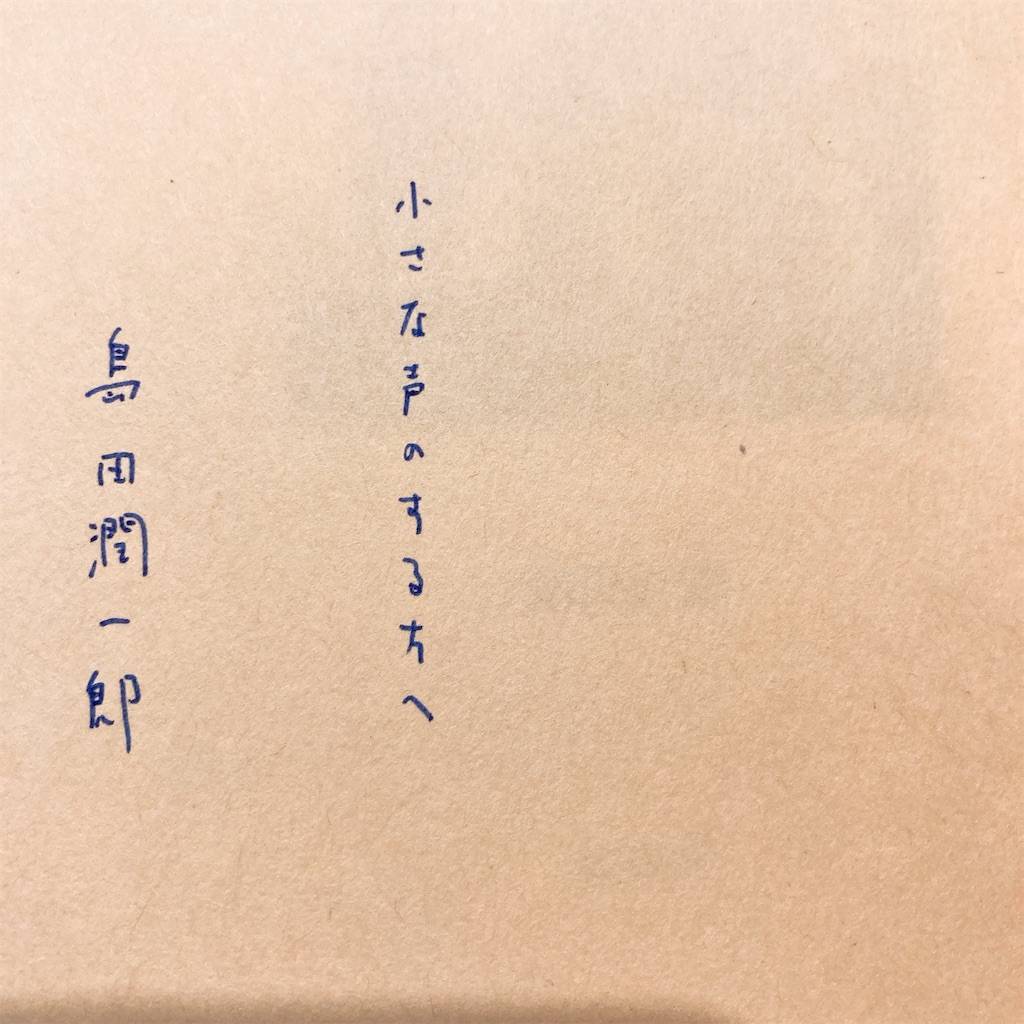 小さな声のする方へ
島田潤一郎